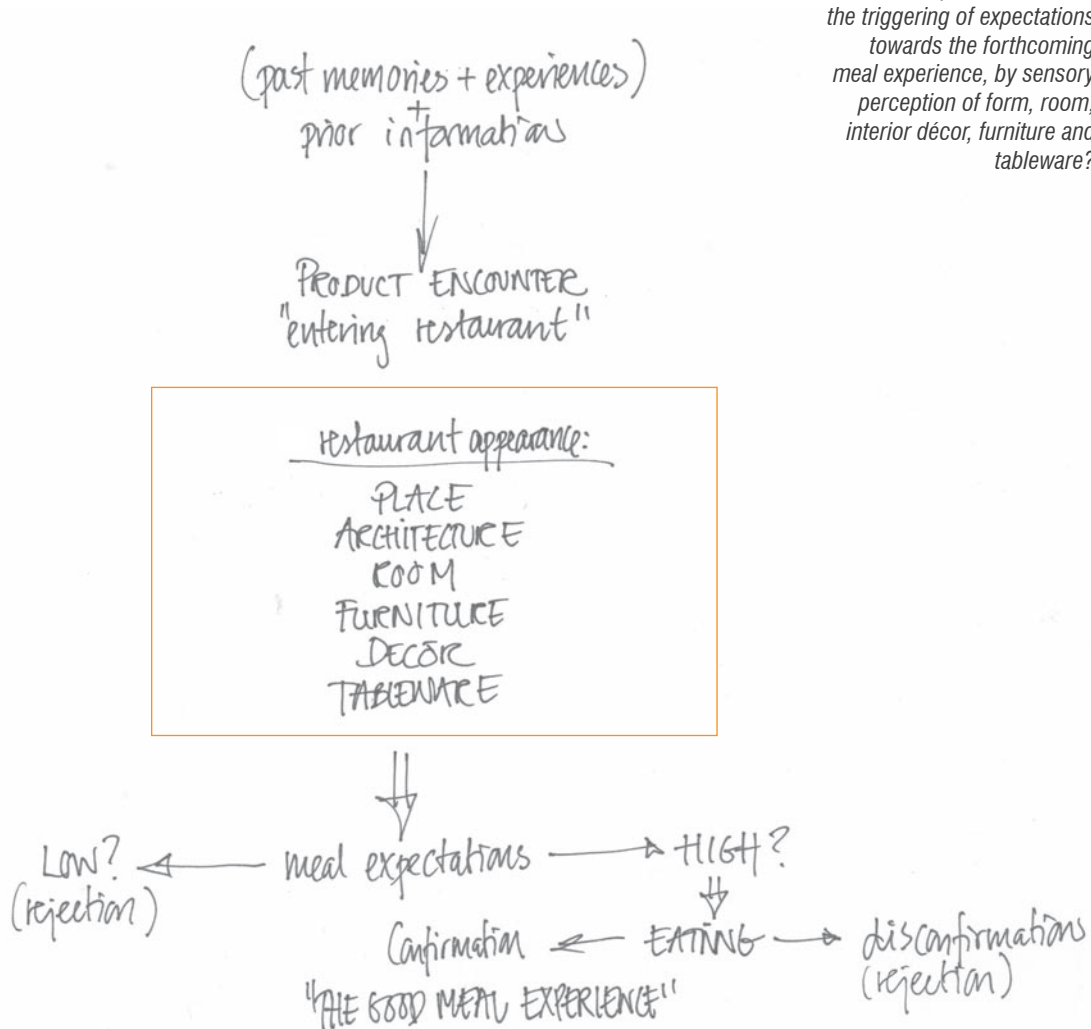 the triggering of expectations
towards the forthcoming
meal experience, by sensory
perception of form, room,
interior décor, furniture and
tableware?
(past memories + experiences)
+
prior informations
PRODUCT ENCOUNTER
"entering restaurant"
restaurant appearance:
PLACE
ARCHITECTURE
ROOM
FURNITURE
DECOR
TABLEWARE
LOW? meal expectations HIGH?
(rejection)
Confirmation EATING disconfirmations
"THE GOOD MEAL EXPERIENCE" (rejection)